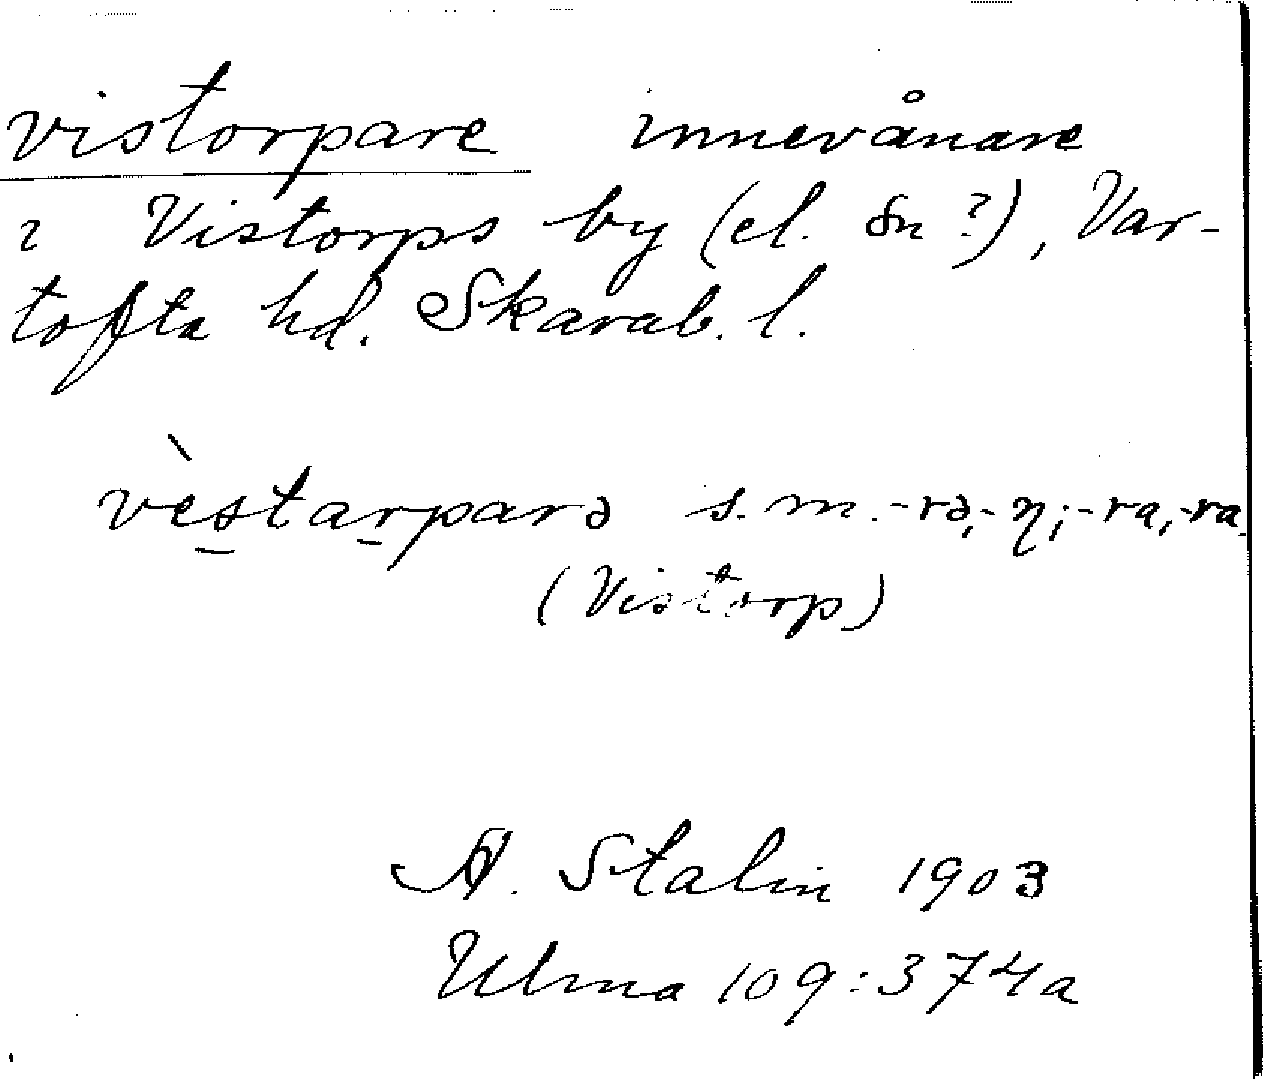 vistorpare innevånare
i Vistorps by (el. sn?), Var-
tofta hd. Skarab. l.
vèstarparə s.m. -rə, -ŋ; -ra, -ra.
(Vistorp)
A. Stalin 1903
Ulma 109:374a